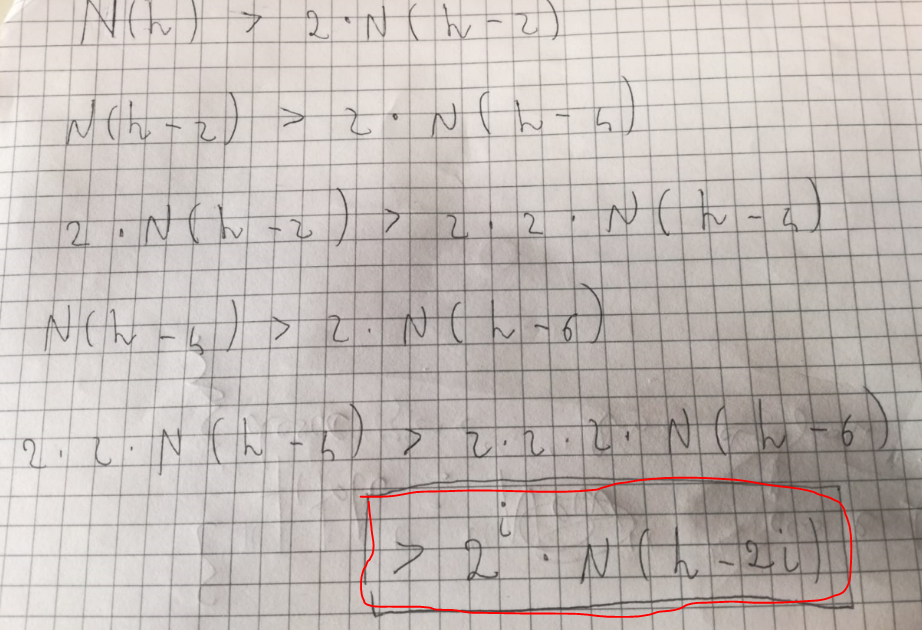 N(h) > 2·N(h-2)
N(h-2) > 2·N(h-4)
2·N(h-2) > 2·2·N(h-4)
N(h-4) > 2·N(h-6)
2·2·N(h-4) > 2·2·2·N(h-6)
> 2^i·N(h-2i)